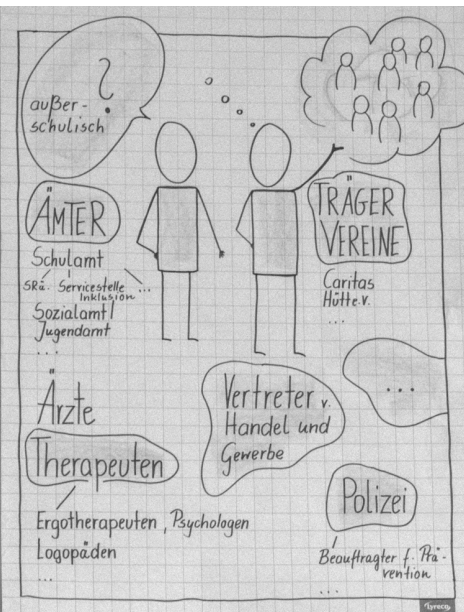 ?
außer-
schulisch
ÄMTER
Schulamt
SRä. Servicestelle ...
Inklusion
Sozialamt/
Jugendamt
...
TRÄGER
VEREINE
Caritas
Hütte.V.
...
Ärzte
Therapeuten
Ergotherapeuten, Psychologen
Logopäden
...
Vertreter v.
Handel und
Gewerbe
...
Polizei
Beauftragter f. Prä-
vention
...
Lyreco